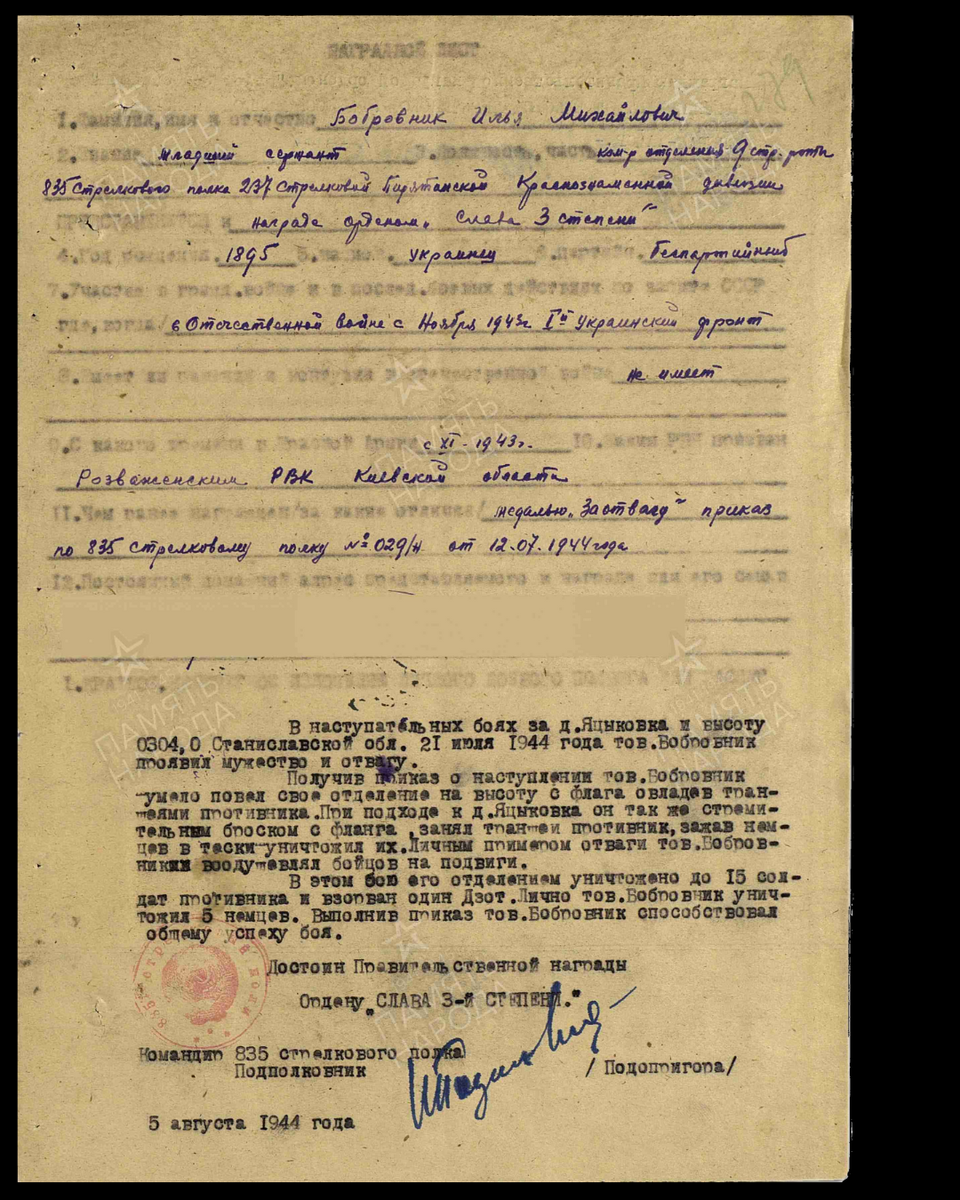 НАГРАДНОЙ ЛИСТ
1. Фамилия, имя и отчество Бобровник Илья Михайлович
2. Звание младший сержант 3. Должность, часть ком-р отделения 9 стр. роты
835 Стрелкового полка 237 Стрелковой Пирятинской Краснознаменной дивизии
ПРЕДСТАВЛЯЕТСЯ к награде орденом „Слава 3 степени"
4. Год рождения. 1895 5. национ. украинец 6. партийн. беспартийный
7. Участие в гражд. войне и в послед. боевых действиях по защите СССР
где, когда/ в Отечественной войне с Ноября 1943г Iй Украинский фронт
8. Имеет ли ранения и контузии в отечественной войне не имеет
9. С какого времени в Красной Армии с XI - 1943г. 10. Каким РВК призван
Розваженским РВК Киевской области
11. Чем ранее награжден/за какие отличия/ медалью „За отвагу" приказ
по 835 стрелковому полку № 029/н от 12.07.1944 года
12. Постоянный домашний адрес представляемого к награде или его семьи
В наступательных боях за д.Яцыковка и высоту
0304,0 Станиславской обл. 21 июля 1944 года тов.Бобровник
проявил мужество и отвагу.
Получив приказ о наступлении тов.Бобровник
умело повел свое отделение на высоту с флага овладев тран-
шеями противника.При подходе к д.Яцыковка он так же стреми-
тельным броском с фланга ,занял траншеи противник,зажав нем-
цев в тески уничтожил их.Личным примером отваги тов.Бобров-
никих воодушевлял бойцов на подвиги.
В этом бою его отделением уничтожено до 15 сол-
дат противника и взорван один Дзот.Лично тов.Бобровник унич-
тожил 5 немцев. Выполнив приказ тов.Бобровник способствовал
общему успеху боя.
Достоин Правительственной награды
Ордену „СЛАВА 3-й СТЕПЕНИ."
Командир 835 стрелкового полка
Подполковник /Подопригора/
5 августа 1944 года
ПАМЯТЬ НАРОДА